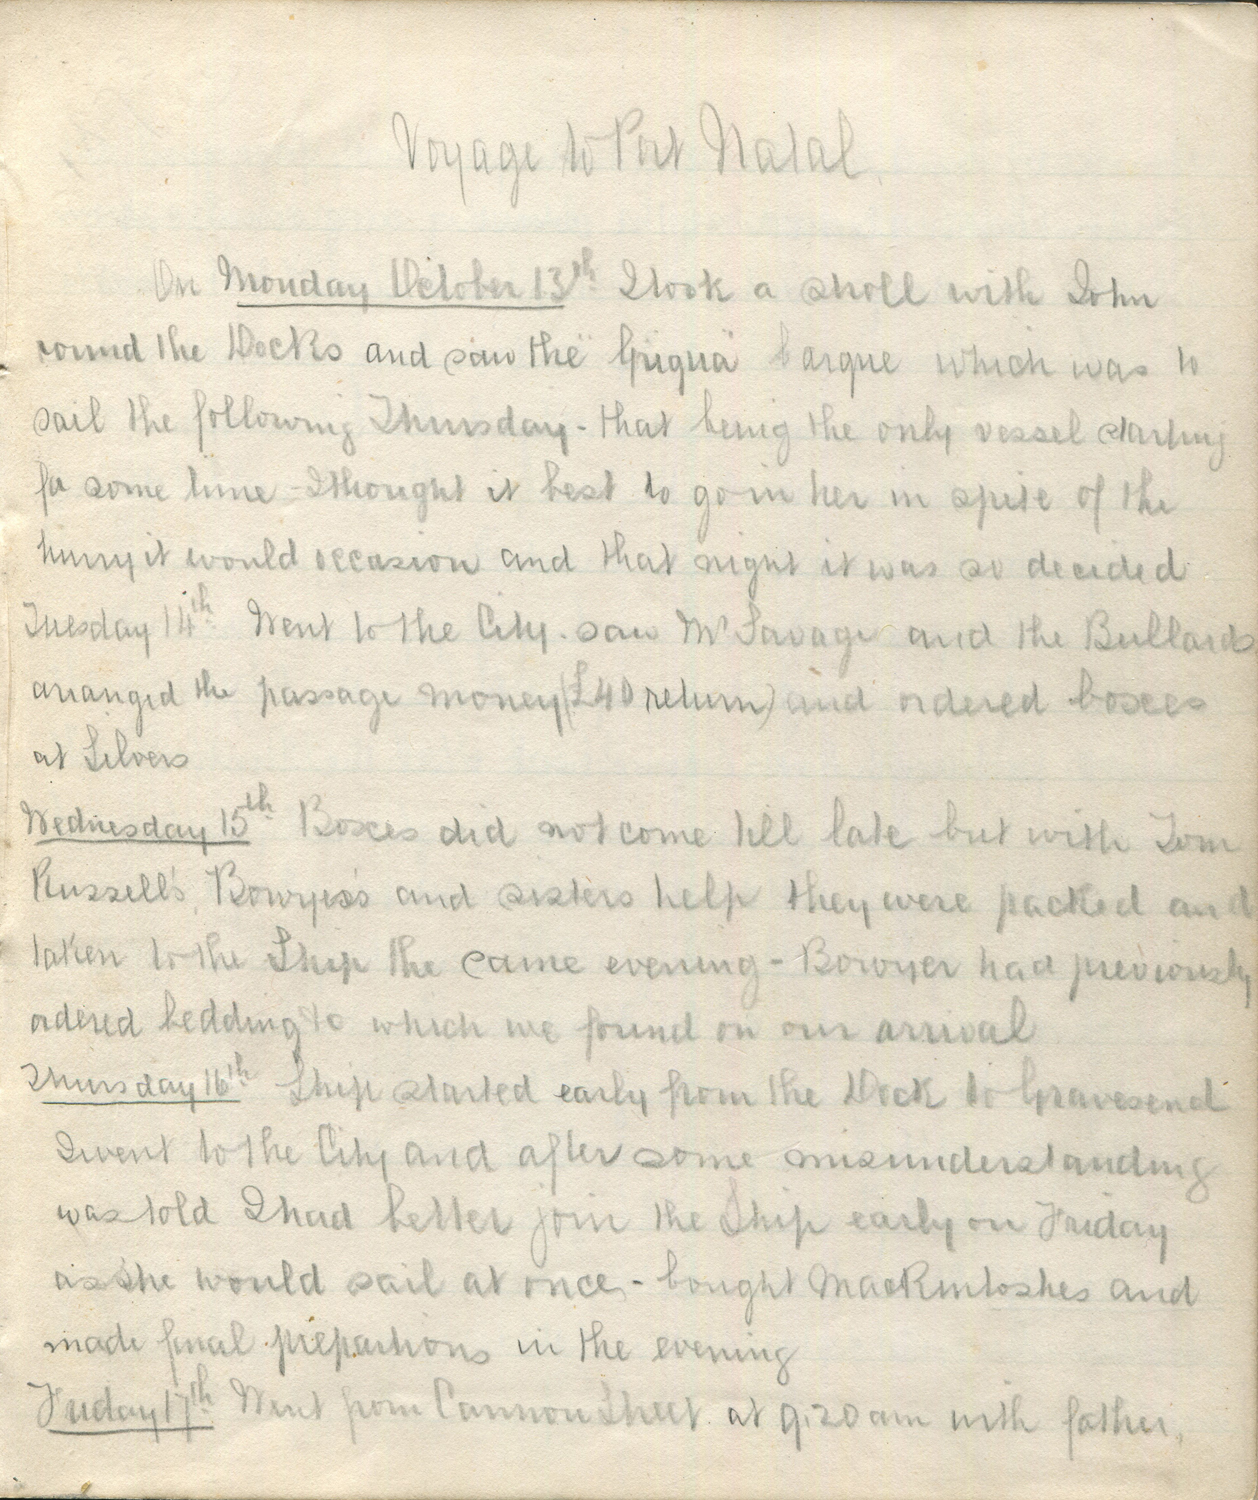 Voyage to Port Natal.
On Monday October 13th I took a stroll with John
round the Docks and saw the "Griqua" barque which was to
sail the following Thursday - that being the only vessel starting
for some time - I thought it best to go in her in spite of the
hurry it would occasion and that night it was so decided
Tuesday 14th Went to the City. saw Mr Savage and the Bullards
arranged the passage money (£40 return) and ordered boxes
at Silvers
Wednesday 15th Boxes did not come till late but with Tom
Russell's, Bowyer's and sisters help they were packed and
taken to the Ship the same evening - Bowyer had previously
ordered bedding &c which we found on our arrival
Thursday 16th Ship started early from the Dock to Gravesend
I went to the City and after some misunderstanding
was told I had better join the Ship early on Friday
as she would sail at once, - bought Mackintoshes and
made final prepartions in the evening
Friday 17th Went from Cannon Street at 9.20 am with father,